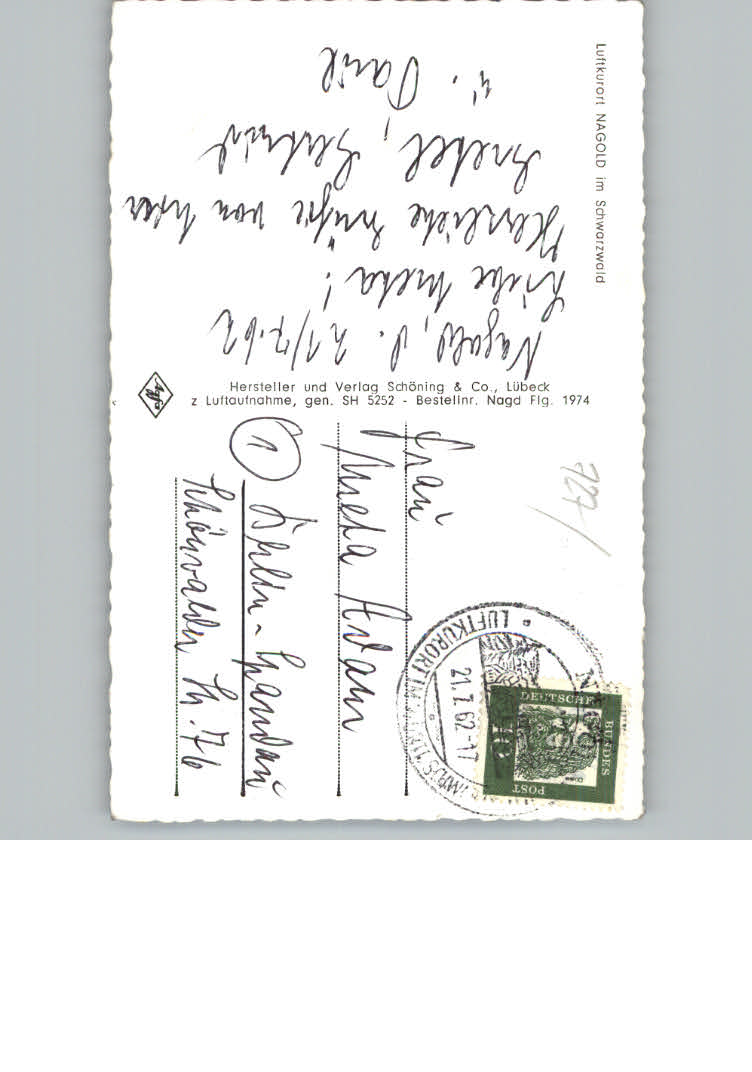 Luftkurort NAGOLD im Schwarzwald
Nagold, d. 21/7.62
Liebe Meta!
Herzliche Grüße von hier
u.
Hersteller und Verlag Schöning & Co., Lübeck
z Luftaufnahme, gen. SH 5252 - Bestellnr. Nagd Flg. 1974
Agfa
Frau
Meta Adam
1 Berlin-Spandau
Schönwalder Str. 76
727/
LUFTKURORT IM
21.7.62-17
DEUTSCHE
BUNDES
POST